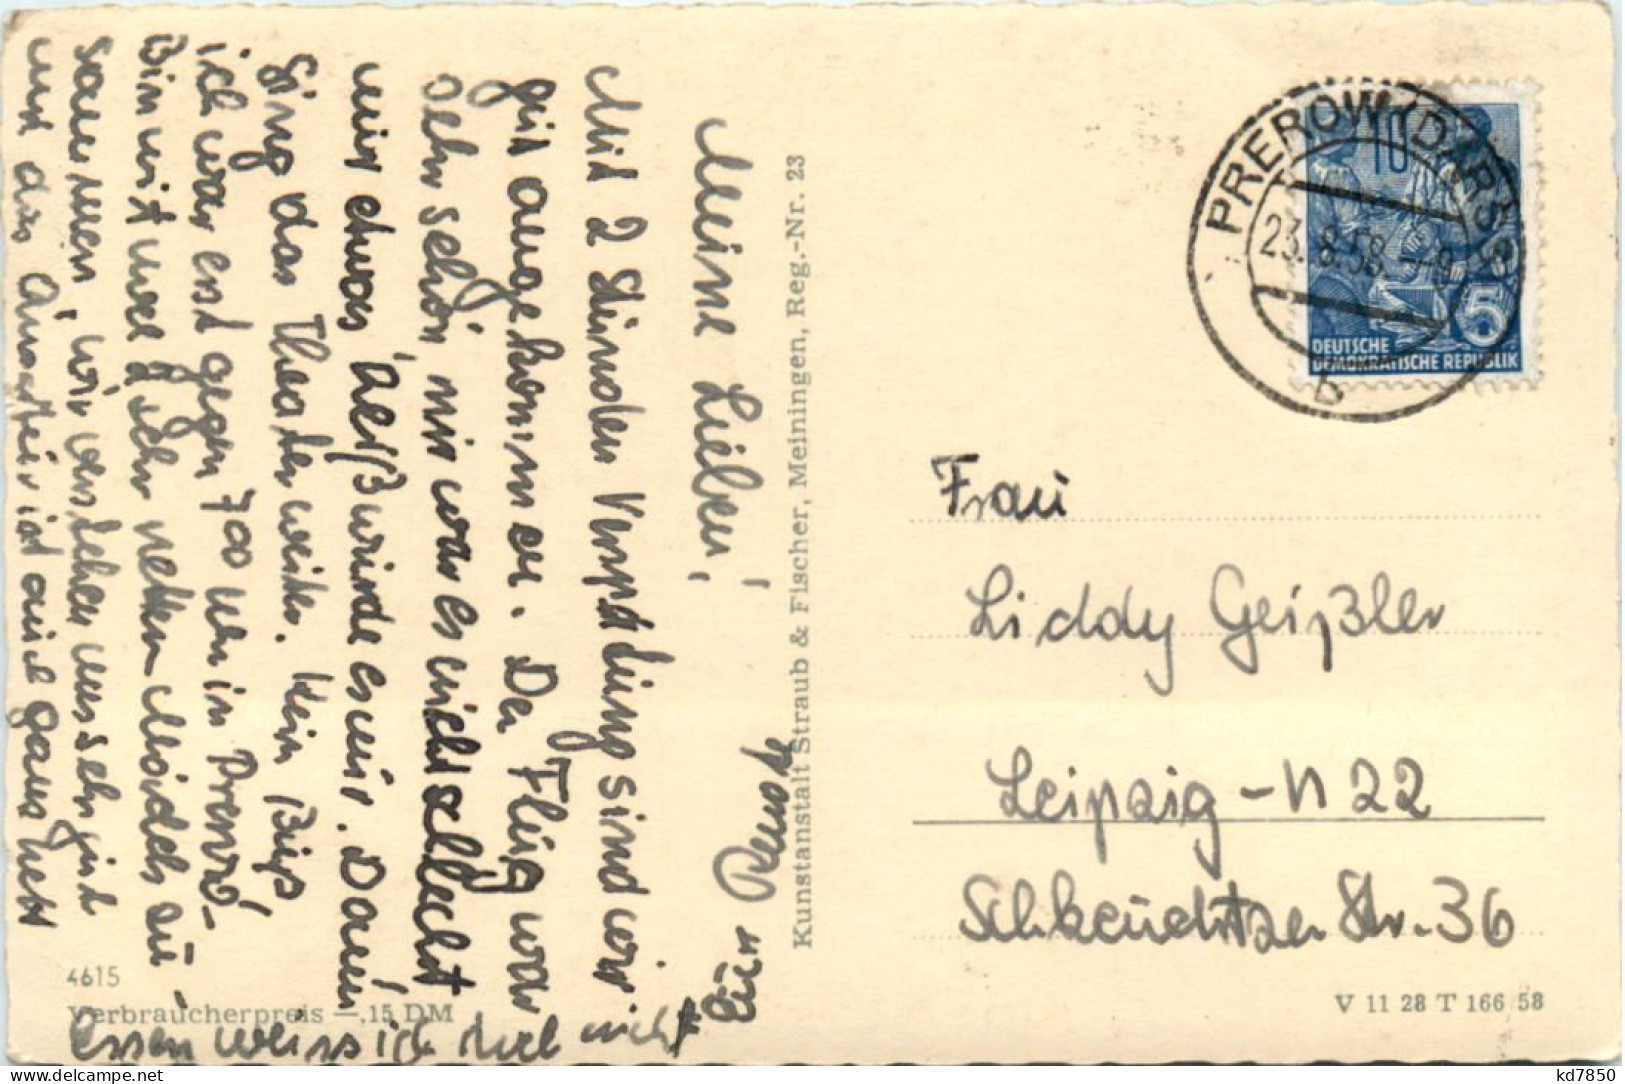 Meine Lieben!
Mit 2 Stunden Verspätung sind wir
gut angekommen. Der Flug war
sehr schön, mir war es nicht schlecht
nur etwas heiß wurde es mir. Dann
ging das Theater weiter. Kein Bus,
ich war erst gegen 700 Uhr in Prerow.
Bin mit zwei sehr netten Mädels zu-
sammen, wir verstehen uns sehr gut
und das Quartier ist auch ganz nett
Essen weiss ich noch nicht
Eure Renate
4615
Verbraucherpreis —,15 DM
Kunstanstalt Straub & Fischer, Meiningen, Reg.-Nr. 23
PREROW (DARSS)
23.8.58.-9
b
10
5
DEUTSCHE
DEMOKRATISCHE REPUBLIK
Frau
Liddy Geißler
Leipzig-N 22
Schkeuditzer Str. 36
V 11 28 T 166 58
kd7850